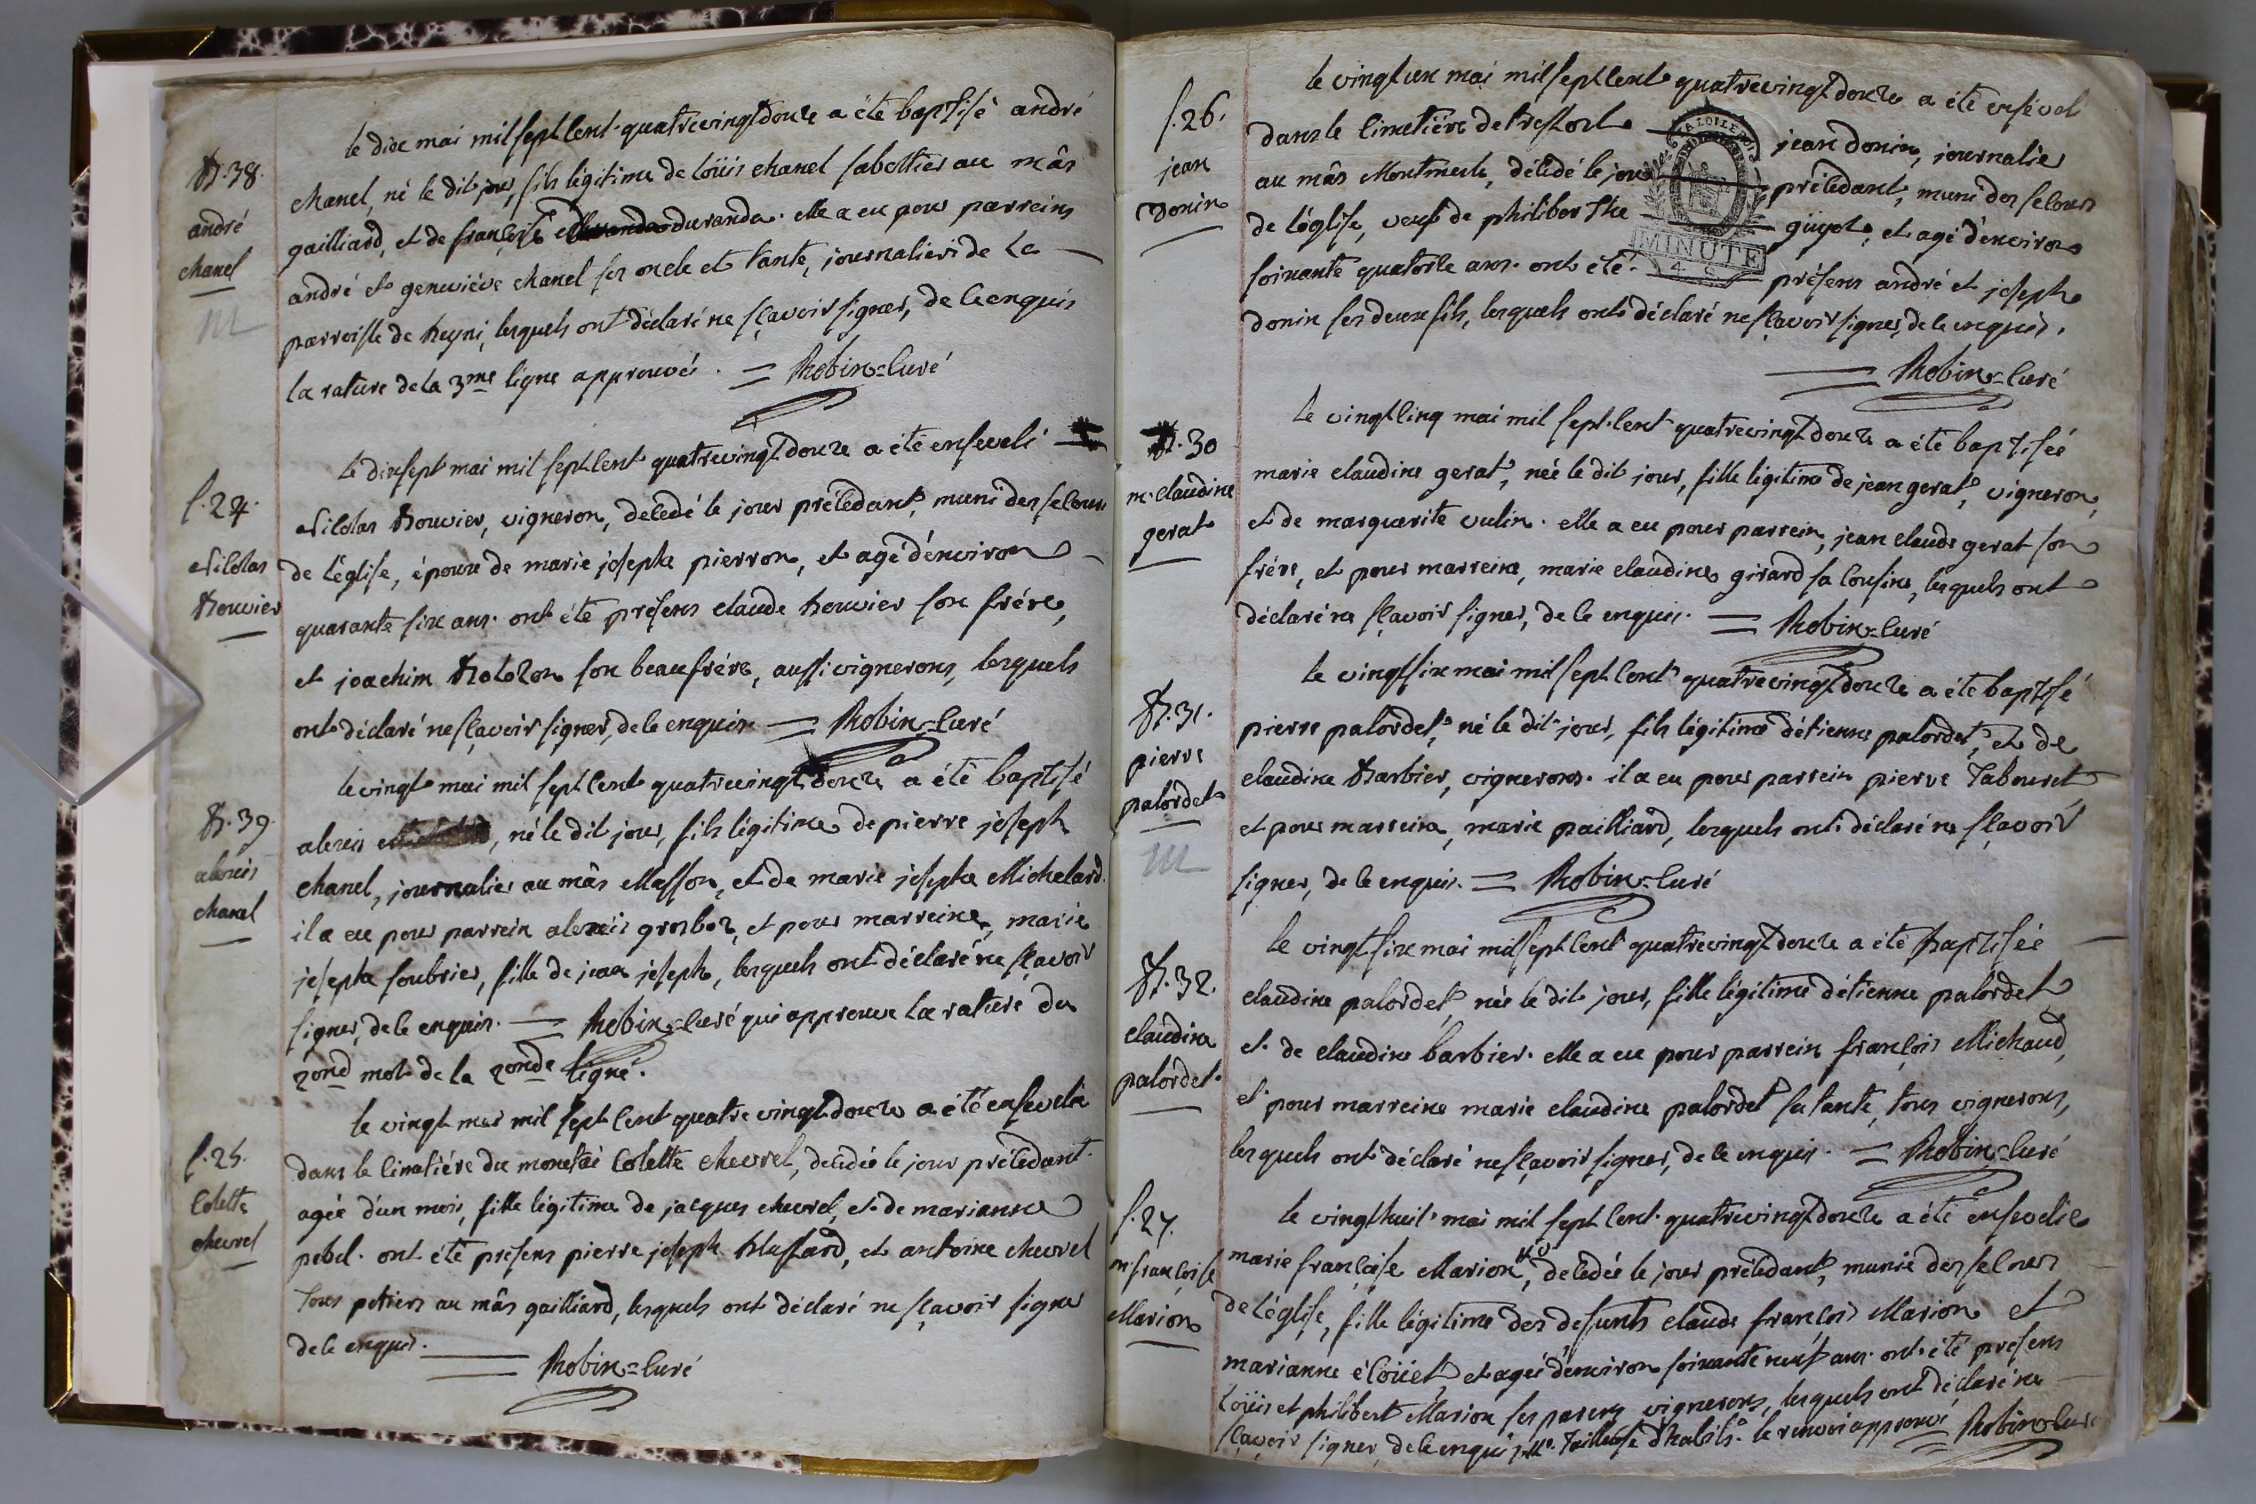 B.38.
andré
chanel
le dix mai mil sept cent quatrevingt douze a été baptisé andré
chanel, né le dit jour, fils légitime de loüis chanel sabottier au mâs
gailliard, et de françoise duranda. elle a eu pour parreins
andré et geneviéve chanel ses oncle et tante, journaliers de la
parroisse de beyni, lesquels ont déclaré ne sçavoir signer, de ce enquis
la rature de la 3me ligne approuvée. = Robin = curé
s.24.
Nicolas
bouvier
le dix sept mai mil sept cent quatrevingt douze a été enseveli
Nicolas bouvier, vigneron, décedé le jour précedant, muni des secours
de l'église, époux de marie josephe pierron, et agé d'environ
quarante six ans. ont été présens claude bouvier son frére,
et joachim son beaufrére, aussi vignerons, lesquels
ont déclaré ne sçavoir signer, de ce enquis = Robin = curé
B.39.
alexis
chanel
le vingt mai mil sept cent quatrevingt douze a été baptisé
alexis , né le dit jour, fils légitime de pierre joseph
chanel, journalier au mâs Masson, et de marie josephe Michelard.
il a eu pour parrein alexis grosbor, et pour marreine, marie
josephe foubrier, fille de jean joseph, lesquels ont déclaré ne sçavoir
signer, de ce enquis. = Robin = curé qui approuve la rature du
2ond mot de la 2onde ligne.
s.25.
Colette
chevrel
le vingt mai mil sept cent quatre vingt douze a été ensevelie
dans le cimetiére du monetai Colette chevrel, décedée le jour précedant
agée d'un mois, fille légitime de jacques chevrel, et de marianne
pebel. ont été présens pierre joseph blassard, et antoine chevrel
tous potiers au mâs gailliard, lesquels ont déclaré ne sçavoir signer
de ce enquis. = Robin = curé
s.26.
jean
Donin
le vingt un mai mil sept cent quatrevingt douze a été ensevel
dans le cimetiére de tressort jean donin, journalier
au mâs Montmerle, décedé le jour précedant, muni des secours
de l'église, veuf de philiberthe guyot, et agé d'environ
soixante quatorze ans. ont été présens andré et joseph
donin ses deux fils, lesquels ont déclaré ne sçavoir signer, de ce enquis.
= Robin = curé
MINUTE
B.30
m. claudine
gerat
le vingt cinq mai mil sept cent quatrevingt douze a été baptisée
marie claudine gerat, née le dit jour, fille légitime de jean gerat, vigneron,
et de marguerite vulin. elle a eu pour parrein, jean claude gerat son
frére, et pour marreine, marie claudine girard sa cousine, lesquels ont
déclaré ne sçavoir signer, de ce enquis. = Robin = curé
B.31.
pierre
palordet
le vingt six mai mil sept cent quatrevingt douze a été baptisé
pierre palordet, né le dit jour, fils légitime d'étienne palordet, et de
claudine barbier, vignerons. il a eu pour parrein pierre Tabouret
et pour marreine, marie pailliard, lesquels ont déclaré ne sçavoir
signer, de ce enquis. = Robin = curé
B.32.
claudine
palordet.
le vingt six mai mil sept cent quatrevingt douze a été baptisée
claudine palordet, née le dit jour, fille légitime d'étienne palordet
et de claudine barbier. elle a eu pour parrein françois Michaud,
et pour marreine marie claudine palordet sa tante, tous vignerons,
lesquels ont déclaré ne sçavoir signer, de ce enquis. = Robin = curé
s.27.
m françoise
Marion
le vingt huit mai mil sept cent quatrevingt douze a été ensevelie
marie françoise Marion, décedée le jour précedant, munie des secours
de l'église, fille légitime des defunts claude françois Marion et
marianne éloüet, et agée d'environ soixante neuf ans. ont été présens
Loüis et philibert Marion ses parens vignerons, lesquels ont déclaré ne
sçavoir signer, de ce enquis. Tailleuse d'habits. le renvoi approuvé = Robin = curé